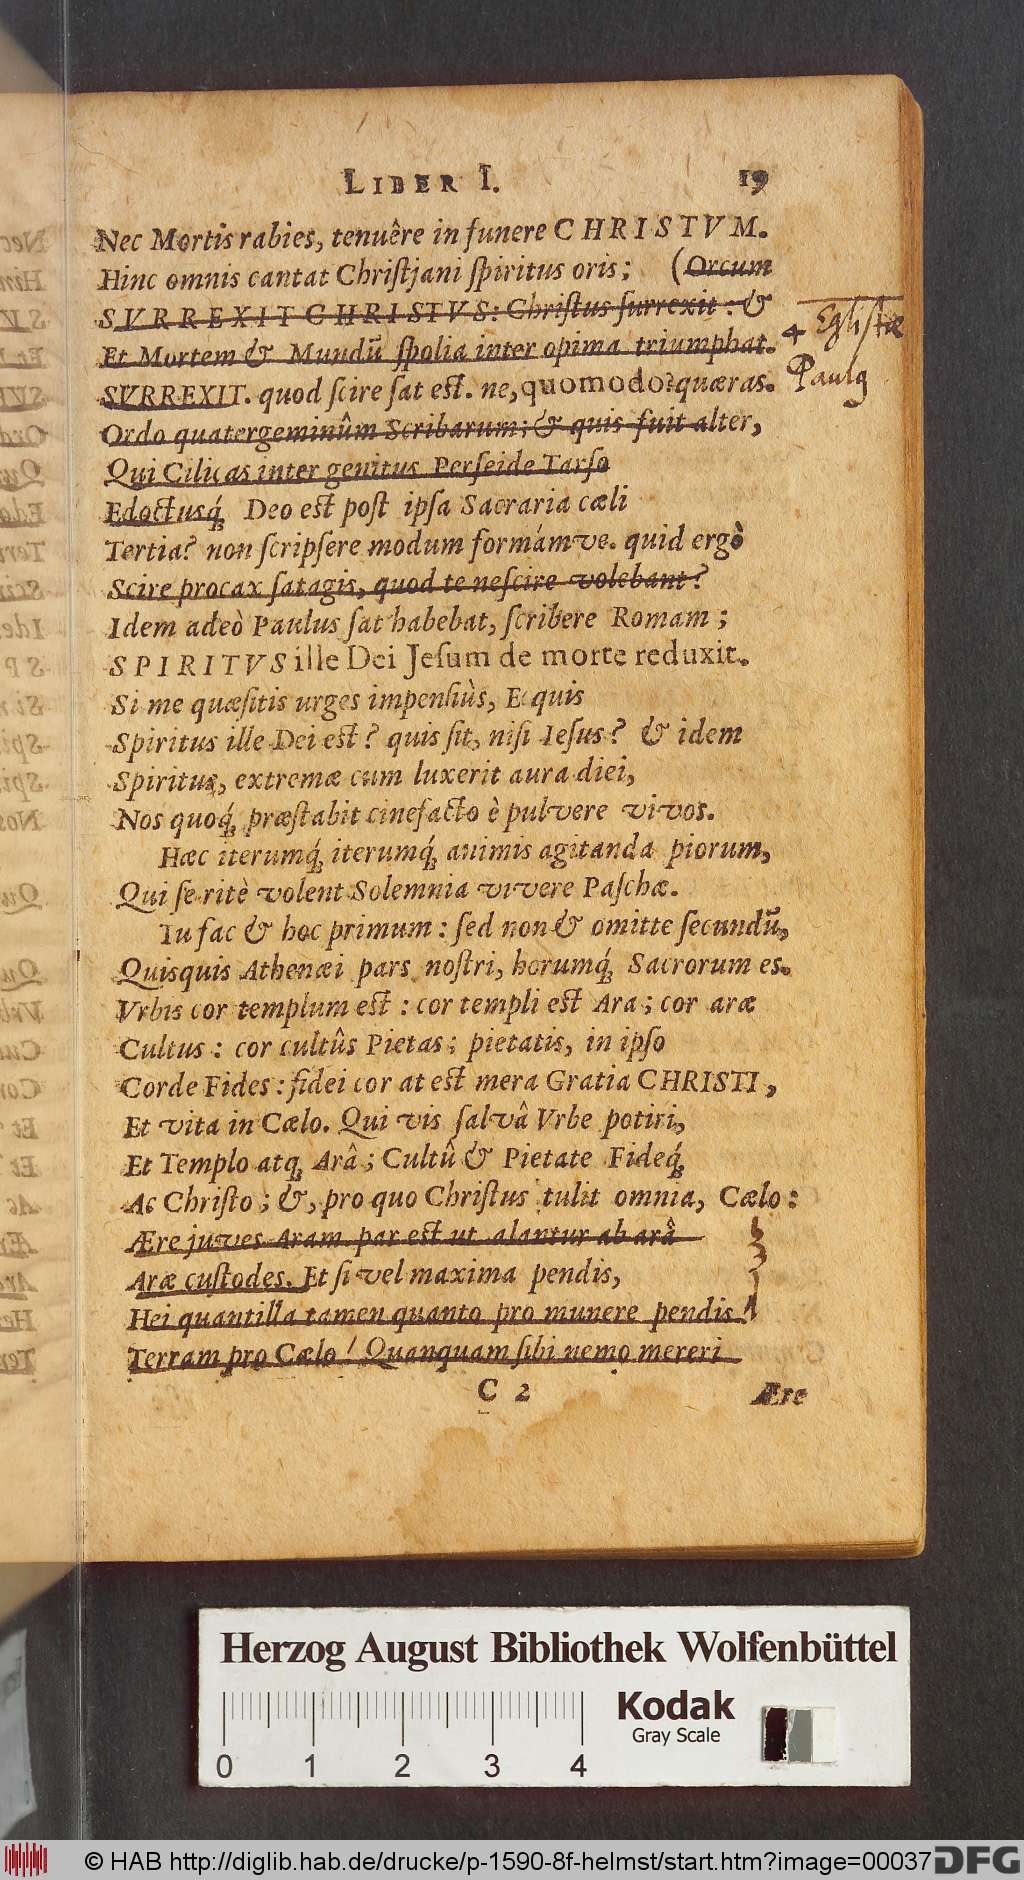 LIBER I. 19
Nec Mortis rabies, tenuêre in funere CHRISTVM.
Hinc omnis cantat Christjani spiritus oris; (Orcum
SVRREXIT CHRISTVS: Christus surrexit: &
Et Mortem & Mundũ spolia inter opima triumphat.
4 Eglistæ
SVRREXIT. quod scire sat est. ne, quomodo? quæras.
Paulꝗ
Ordo quatergeminûm Scribarum; & quis fuit alter,
Qui Cilicas inter genitus Perseide Tarso
Edoctusq́; Deo est post ipsa Sacraria cæli
Tertia? non scripsere modum formámve. quid ergò
Scire procax satagis, quod te nescire volebant?
Idem adeò Paulus sat habebat, scribere Romam;
SPIRITVS ille Dei Jesum de morte reduxit.
Si me quæsitis urges impensiùs, Ecquis
Spiritus ille Dei est? quis sit, nisi Iesus? & idem
Spiritus, extremæ cum luxerit aura diei,
Nos quoq́; præstabit cinefacto è pulvere vivos.
Hæc iterumq́; iterumq́; animis agitanda piorum,
Qui se ritè volent Solemnia vivere Paschæ.
Tu fac & hoc primum: sed non & omitte secundũ,
Quisquis Athenæi pars nostri, horumq́; Sacrorum es.
Vrbis cor templum est: cor templi est Ara; cor aræ
Cultus: cor cultûs Pietas; pietatis, in ipso
Corde Fides: fidei cor at est mera Gratia CHRISTI,
Et vita in Cælo. Qui vis salvâ Vrbe potiri,
Et Templo atq; Arâ; Cultû & Pietate Fideq́;
Ac Christo; &, pro quo Christus tulit omnia, Cælo:
Ære juves Aram. par est ut alantur ab arâ
Aræ custodes. Et si vel maxima pendis,
Hei quantilla tamen quanto pro munere pendis!
Terram pro Cælo! Quanquam sibi nemo mereri
C 2 Ære
Herzog August Bibliothek Wolfenbüttel
Kodak
Gray Scale
0 1 2 3 4
© HAB http://diglib.hab.de/drucke/p-1590-8f-helmst/start.htm?image=00037
DFG